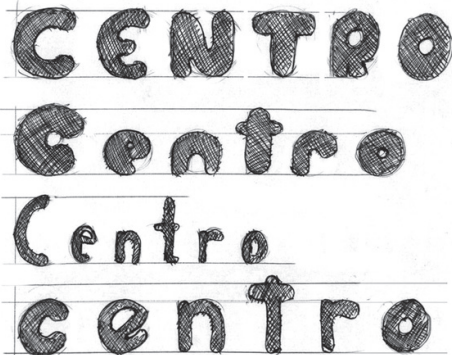 CENTRO
Centro
Centro
centro